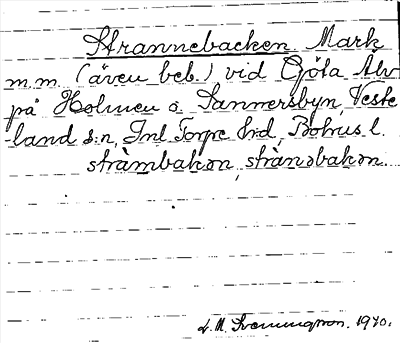 Strannebacken Mark
m.m. (även beb.) vid Göta Älv
på Holmen o. Sannersbyn, Veste
-land s:n, Inl Torpe hrd, Bohus l.
stràmbakən, stranəbakən.
L. M. Svenungsson. 1970.